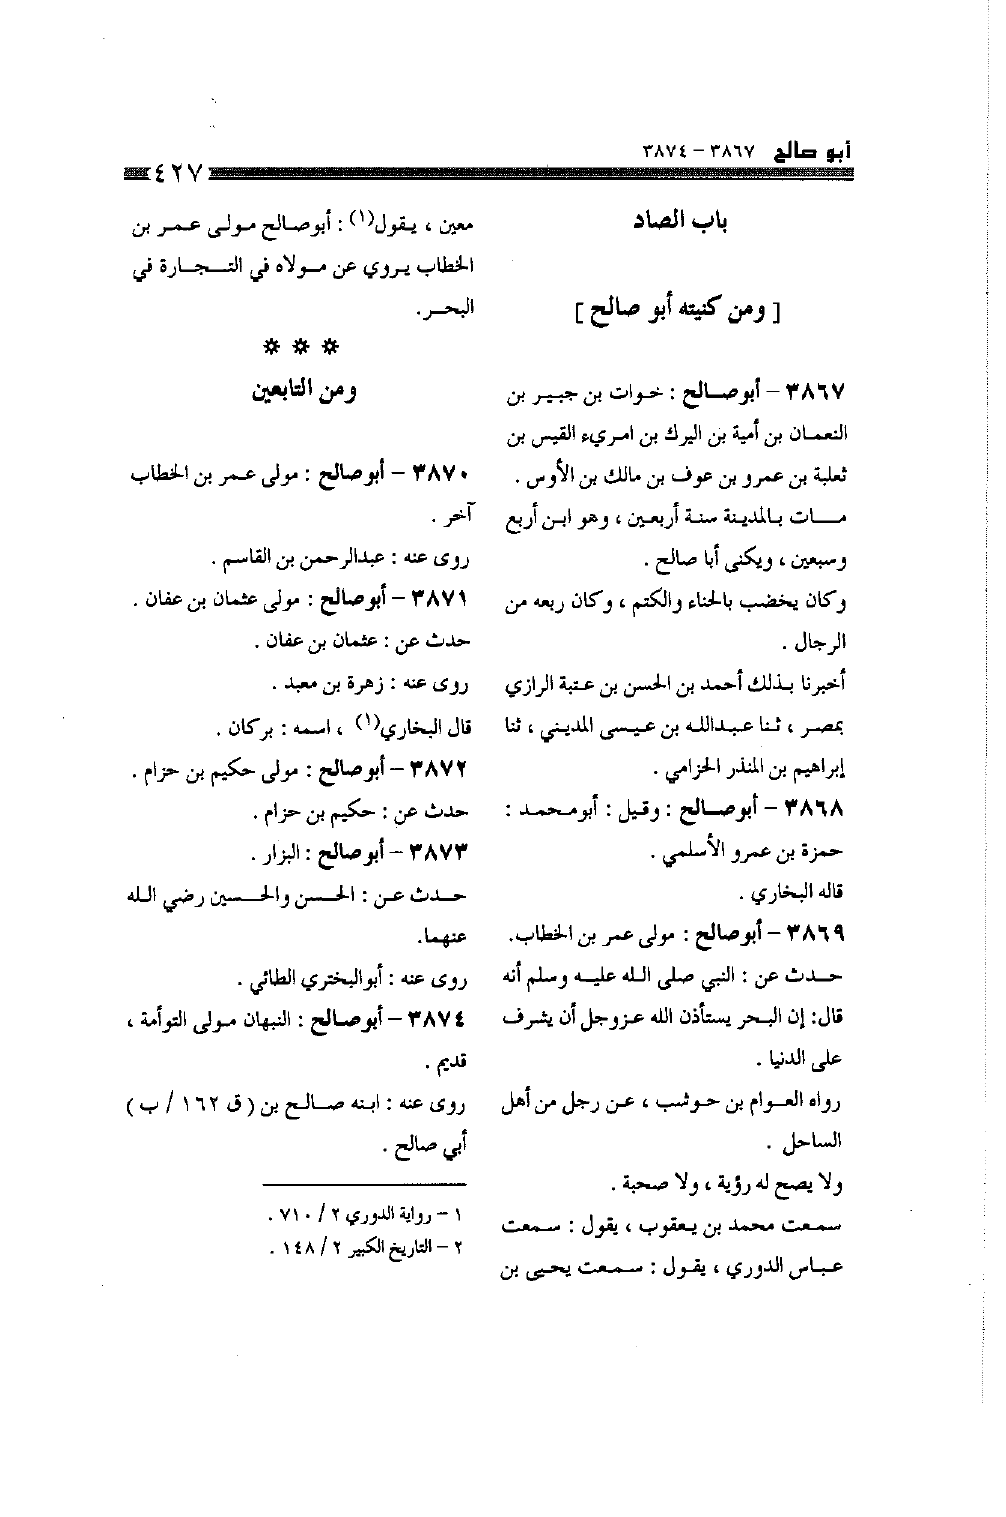 أبو صالح ٣٨٦٧ - ٣٨٧٤
٤٢٧
باب الصاد
[ ومن كنيته أبو صالح ]
٣٨٦٧ - أبو صالح : خوات بن جبير بن
النعمان بن أمية بن البرك بن امريء القيس بن
ثعلبة بن عمرو بن عوف بن مالك بن الأوس .
مات بالمدينة سنة أربعين ، وهو ابن أربع
وسبعين ، ويكنى أبا صالح .
وكان يخضب بالحناء والكتم ، وكان ربعه من
الرجال .
أخبرنا بذلك أحمد بن الحسن بن عتبة الرازي
بمصر ، ثنا عبدالله بن عيسى المديني ، ثنا
إبراهيم بن المنذر الحزامي .
٣٨٦٨ - أبو صالح : وقيل : أبو محمد :
حمزة بن عمرو الأسلمي .
قاله البخاري .
٣٨٦٩ - أبو صالح : مولى عمر بن الخطاب.
حدث عن : النبي صلى الله عليه وسلم أنه
قال: إن البحر يستأذن الله عزوجل أن يشرف
على الدنيا .
رواه العوام بن حوشب ، عن رجل من أهل
الساحل .
ولا يصح له رؤية ، ولا صحبة .
سمعت محمد بن يعقوب ، يقول : سمعت
عباس الدوري ، يقول : سمعت يحيى بن
معين ، يقول(١) : أبو صالح مولى عمر بن
الخطاب يروي عن مولاه في التجارة في
البحر.
* * *
ومن التابعين
٣٨٧٠ - أبو صالح : مولى عمر بن الخطاب
آخر .
روى عنه : عبدالرحمن بن القاسم .
٣٨٧١ - أبو صالح : مولى عثمان بن عفان .
حدث عن : عثمان بن عفان .
روى عنه : زهرة بن معبد .
قال البخاري(١) ، اسمه : بركان .
٣٨٧٢ - أبو صالح : مولى حكيم بن حزام .
حدث عن : حكيم بن حزام .
٣٨٧٣ - أبو صالح : البزار .
حدث عن : الحسن والحسين رضي الله
عنهما.
روى عنه : أبو البختري الطائي .
٣٨٧٤ - أبو صالح : النبهان مولى التوأمة ،
قديم .
روى عنه : ابنه صالح بن ( ق ١٦٢ / ب )
أبي صالح .
١ - رواية الدوري ٢ / ٧١٠ .
٢ - التاريخ الكبير ٢ / ١٤٨ .